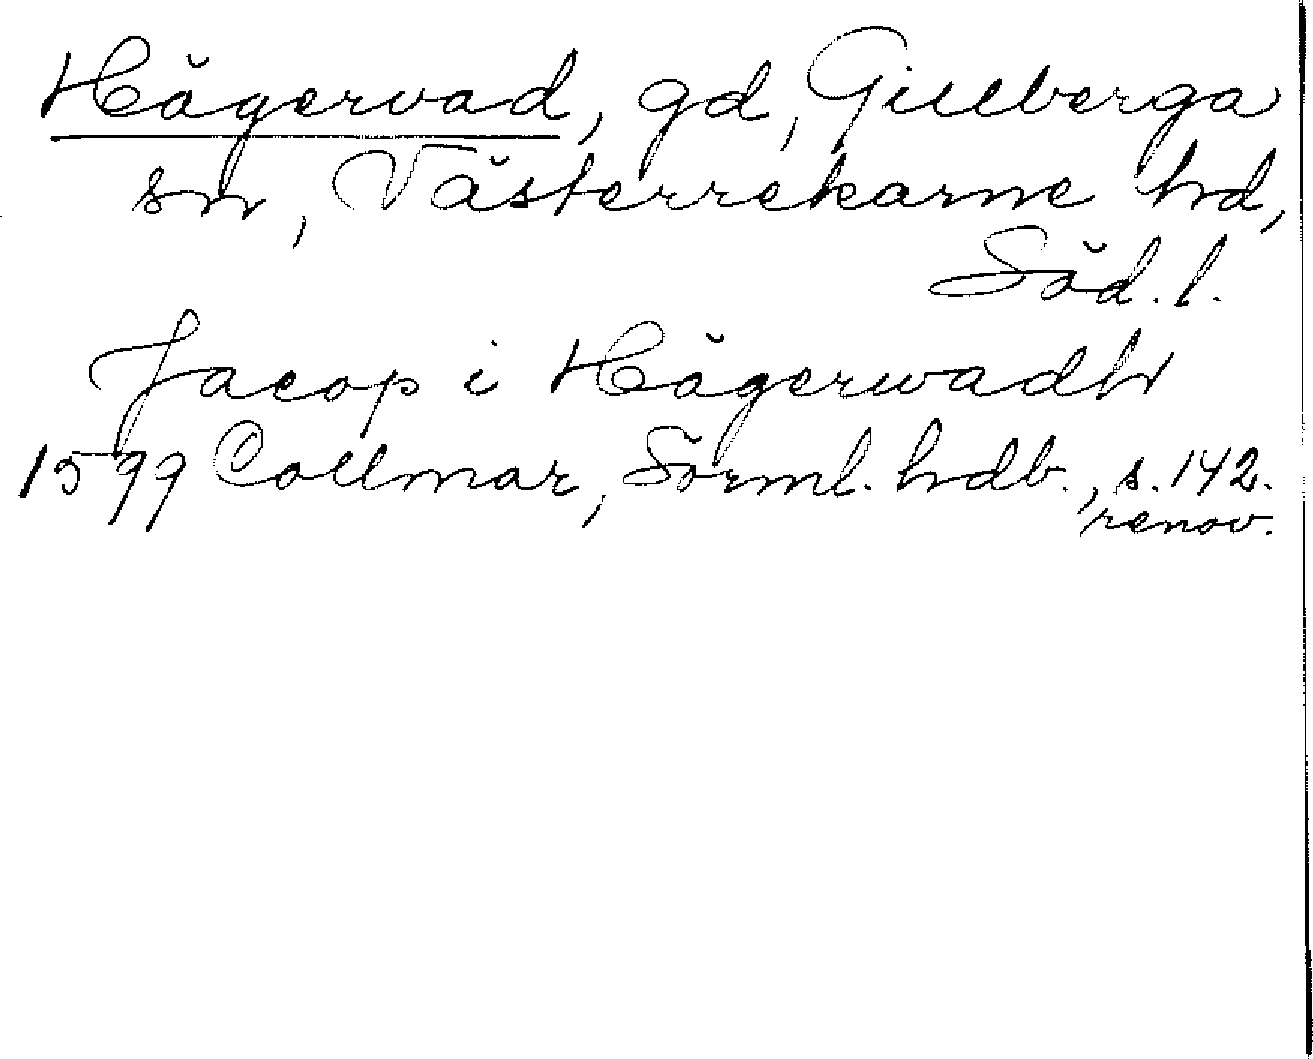 Hägervad, gd, Gillberga
sn, Västerrekarne hd,
Söd. l.
Jacop i Hägerwadh
1599 Collmar, Sörml. hdb., s. 142.
renov.